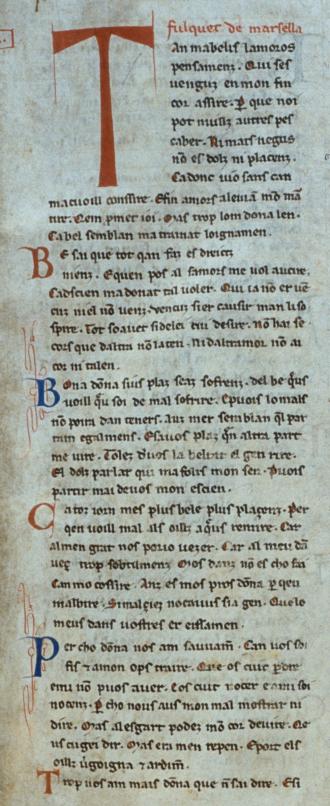 fulquet de marsella
T An mabelis lamoros
pensamenz. Qui ses
venguz en mon fin
cor assire. Per que noi
pot nuillz autres pes
caber. Ni mais negus
no es dolz ni plazenz.
Cadonc viu sans can
macuoill consire. E fin amors aleuia mo mar
tire. Qem promet ioi. Mas trop lom dona len.
Cabel semblan ma trainat loignamen.
B E sai que tot qan faz es dreicz
nienz. E quen pos al samors me vol aucire.
Cadscien ma donat tal voler. Que ia no er ven
cuz niel no venz. vencuz si er causir man li so
spire. Tot soauet si delei cui desire. no hai se
cors que dalra no laten. Ni dalrramor no ai
cor ni talen.
B Ona dona sius plaz seaz sofrenz. del be qus
vuoill qu soi de mal sofrire. E puois lo mals
no poira dan teners. Anz mer semblan ql par
tam egalmens. E sauos plaz qn altra part
me vire. Tolez duos la beltat el gen rire.
El dolz parlar qui mafolis mon sen. Puois
partir mai de uos mon escien.
C a toz iorn mes plus bele plus plazenz. Per
qen voill mal als oillz aqus remire. Car
a lmen grat nos porio vezer. Car al meu dan
vez trop sobtilmenz. Mos danz no es cho sai
can mo cossire. Anz es mos pros dona per qeu
malbire. Si malciez no cauus sia gen. Que lo
meus danz vostres er eissamen.
P er cho dona nos am sauiam. Can vos soi
fis & amon ops traire. Que os cuit perdre
e mi no puos auer. Eos cuit nocer e a mi soi
nocenz. per cho nous aus mon mal mostrar ni
dire. Mas a lesgart podez mo cor deuire. Ne
us cugei dir. Mas era men repen. E port els
oillz vgoigna & ardim.
T rop vos am mais dona que n sai dire. E si